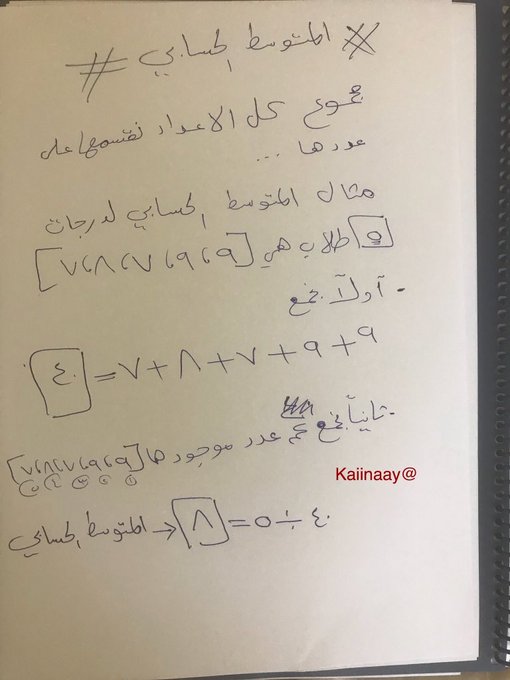 # المتوسط الحسابي #
مجموع كل الاعداد نقسمها على
عددها ...
مثال المتوسط الحسابي لدرجات
٥ طلاب هي [٩،٩،٧،٨،٧]
- أولاً نجمع
٩+٩+٧+٨+٧=٤٠
- ثانياً نجمع كم عدد موجود ها [٩،٩،٧،٨،٧]
١ ٢ ٣ ٤ ٥
Kaiinaay@
٤٠÷٥=٨ → المتوسط الحسابي